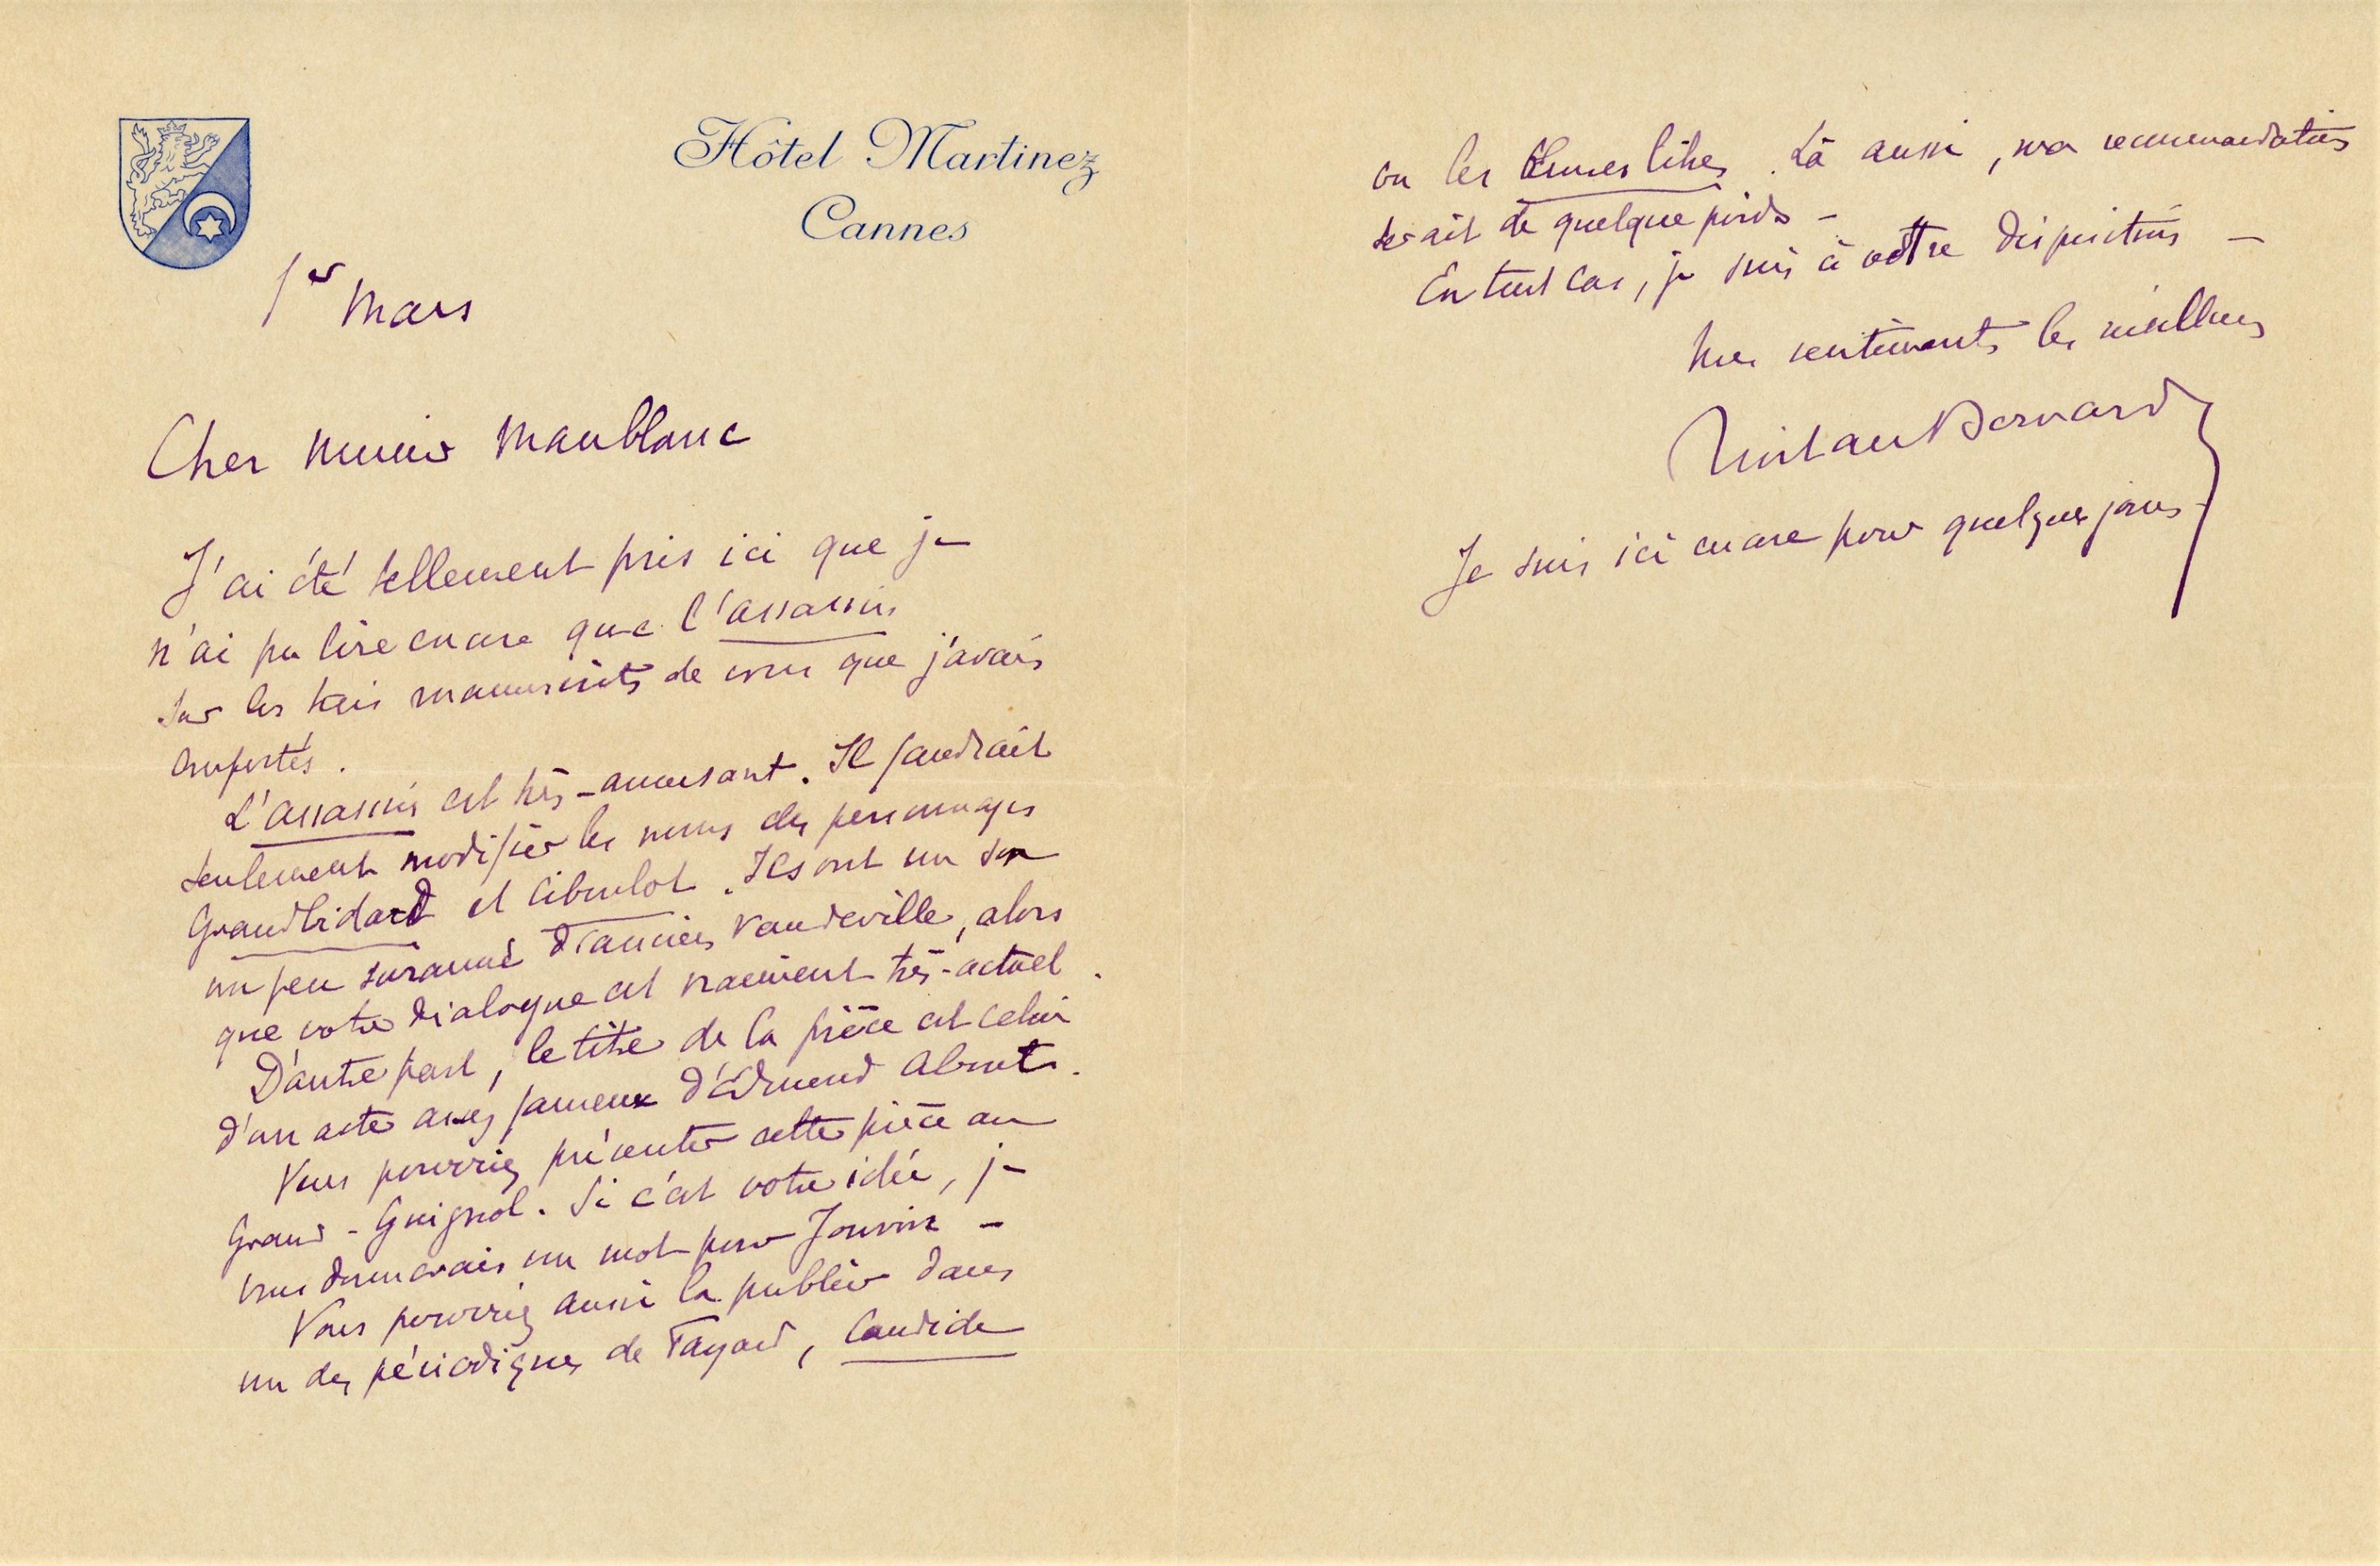 Hôtel Martinez
Cannes
1er Mars
Cher Monsieur Maublanc
J'ai été tellement pris ici que je
n'ai pu lire encore que l'assassin
sur les trois manuscrits de vous que j'avais
emportés.
L'assassin est très-amusant. Il faudrait
seulement modifier les noms des personnages
Grandbidard et Ciboulot. Ils ont un son
un peu suranné d'ancien vaudeville, alors
que votre dialogue est vraiment très-actuel.
D'autre part, le titre de la pièce est celui
d'un acte assez fameux d'Edmond About.
Vous pourriez présenter cette pièce au
Grand-Guignol. Si c'est votre idée, je
vous donnerais un mot pour Jouvin –
Vous pourriez aussi la publier dans
un des périodiques de Fayard, Candide
ou les Œuvres libres. Là aussi, ma recommandation
serait de quelque poids –
En tout cas, je suis à votre disposition –
Mes sentiments les meilleurs
Tristan Bernard
Je suis ici encore pour quelques jours –